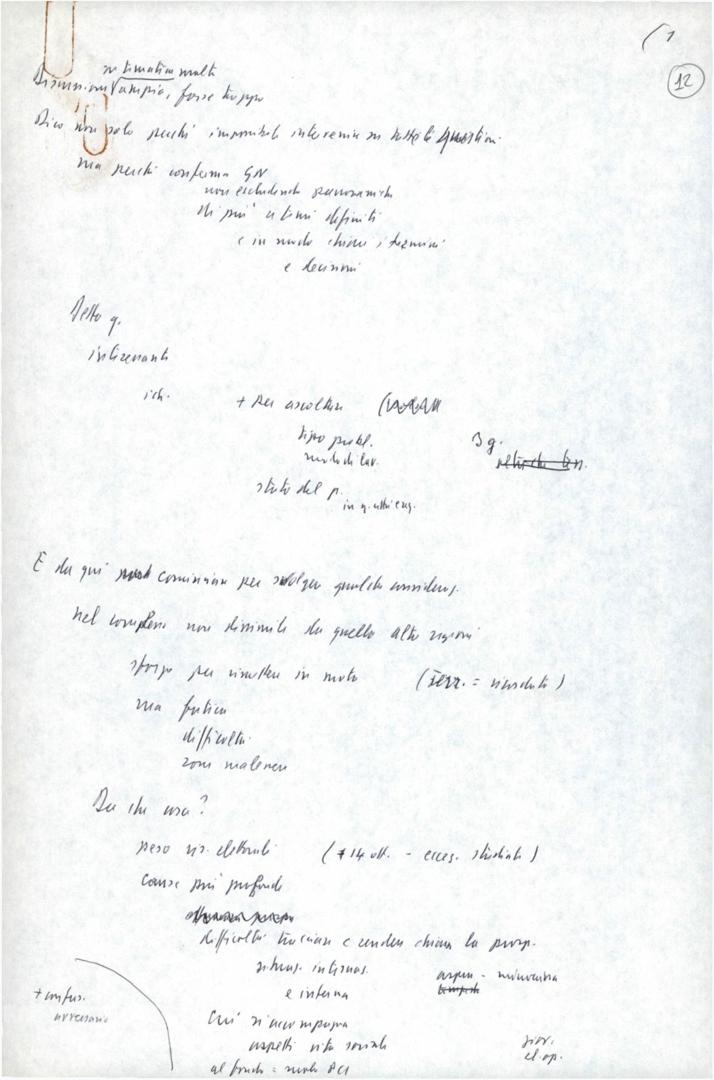 (1
12
su tematica molto
Discussione ampia, forse troppo
Dico non solo perché impossibile intervenire su tutte le questioni
ma perché conferma
non escludendo panoramiche
di più a temi definiti
e in modo chiaro i termini
e decisioni
Detto q.
intervenanti
ich.
+ per ascoltare
tipo probl.
modo di lav.
3 g.
stato del p.
in q.
E da qui cominciare per svolgere qualche consideraz.
nel complesso non dissimile da quello altre regioni
sforzo per rimettere in moto (terr. = riuscito)
ma fatica
difficoltà
zone malessere
Da che cosa?
peso ris. elettorali (14 ott. - studiati)
cause più profonde
difficoltà tracciare e rendere chiara la prosp.
situaz. internaz.
e interna
+ confus.
avversario
Cui si accompagna
aspetti vita sociale
giov.
cl. op.
al fondo = ruolo PCI